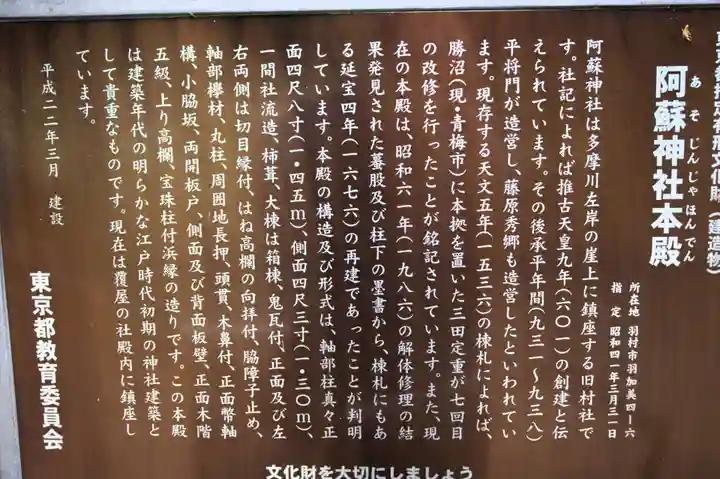 文化財(建造物)
阿蘇神社本殿
あそじんじゃほんでん
所在地 羽村市羽加美四-六
指定 昭和四一年三月三一日
阿蘇神社は多摩川左岸の崖上に鎮座する旧村社で
す。社記によれば推古天皇九年(六〇一)の創建と伝
えられています。その後承平年間(九三一~九三八)
平将門が造営し、藤原秀郷も造営したといわれてい
ます。現存する天文五年(一五三六)の棟札によれば、
勝沼(現・青梅市)に本拠を置いた三田定重が七回目
の改修を行ったことが銘記されています。また、現
在の本殿は、昭和六一年(一九八六)の解体修理の結
果発見された蟇股及び柱下の墨書から、棟札にもあ
る延宝四年(一六七六)の再建であったことが判明
しています。本殿の構造及び形式は、軸部柱真々正
面四尺八寸(一・四五m)、側面四尺三寸(一・三〇m)、
一間社流造、杮葺、大棟は箱棟、鬼瓦付、正面及び左
右両側は切目縁付、はね高欄の向拝付、脇障子止め、
軸部欅材、丸柱、周囲地長押、頭貫、木鼻付、正面幣軸
構、小脇坂、両開板戸、側面及び背面板壁、正面木階
五級、上り高欄、宝珠柱付浜縁の造りです。この本殿
は建築年代の明らかな江戸時代初期の神社建築と
して貴重なものです。現在は覆屋の社殿内に鎮座し
ています。
平成二二年三月 建設
東京都教育委員会
文化財を大切にしましょう